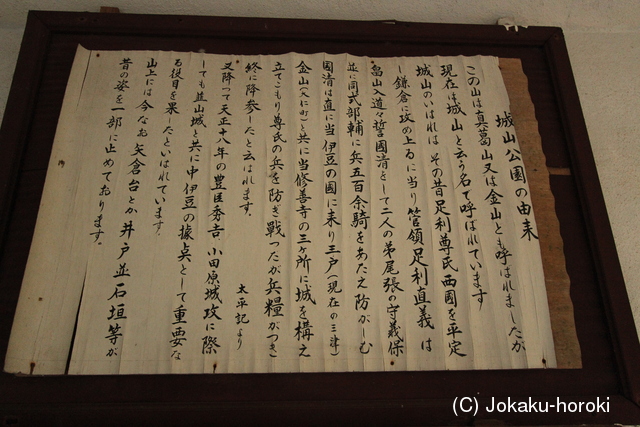 城山公園の由来
この山は真葛山又は金山とも呼ばれましたが
現在は城山と云う名で呼ばれています
城山のいはれは その昔足利尊氏西國を平定
し鎌倉に攻の上るに当り管領足利直義 は
畠山入道々誓國清をして二人の弟尾張の守義保
並に同式部輔に兵五百余騎をあたえ防がしむ
國清は直に当 伊豆の國に来り三戸(現在の三津)
金山(大仁町)と共に当修善寺の三ヶ所に城を構え
立てこもり尊氏の兵を防ぎ戦ったが兵糧がつき
終に降参したと云はれます。 太平記より
又降って天正十八年の豊臣秀吉小田原城攻に際
しても韮山城と共に中伊豆の據点として重要な
る役目を果したといはれています。
山上には今なお矢倉台とか井戸並石垣等が
昔の姿を一部に止めております。
(C) Jokaku-horoki